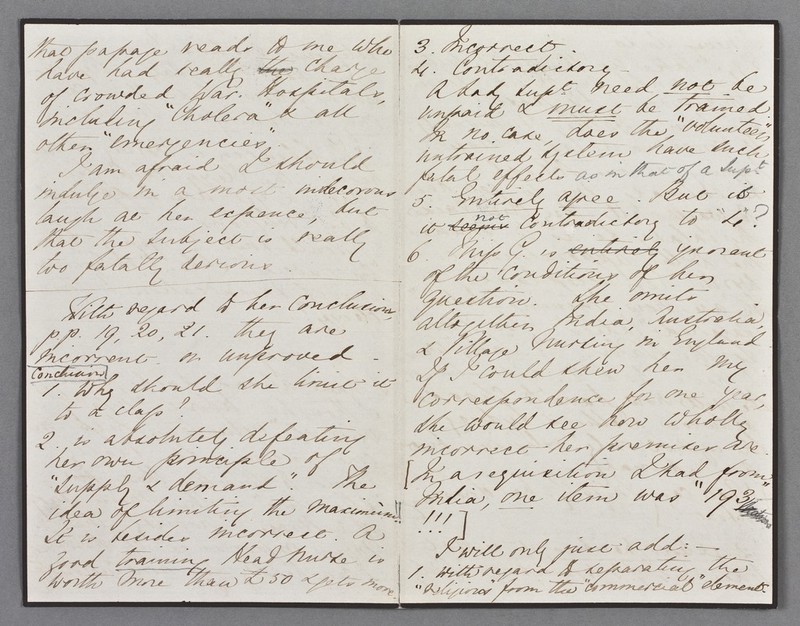 that passage reads to me who
have had really the charge
of crowded War Hospitals,
including "Cholera" & all
other "emergencies".
I am afraid I should
indulge in a most indecorous
laugh at her expence, but
that the subject is really
too fatally serious.
With regard to her Conclusions
pp. 19, 20, 21. they are
incorrect or unproved.
Conclusion
1. Why should she limit it
to a class?
2. is absolutely defeating
her own principle of
"supply & demand". The
idea of limiting the maximum!!
It is besides incorrect. A
good training Head Nurse is
worth more than £50 & gets more.
3. Incorrect.
4. Contradictory
A Lady Supt. need not be
unpaid & must be trained.
In no case does the "volunteer"
untrained system have such
fatal effects as in that of a Supt.
5. Entirely agree. But is
it not contradictory to "4"?
6. Miss G. is entirely ignorant
of the conditions of her
question. She omits
altogether India, Australia,
& Village Nursing in England
If I could shew her my
correspondence for one year,
she would see how wholly
incorrect her premises are.
[In a requisition I had from
India, one item was "193
!!!]
I will only just add: -
1. With regard to separating the
"religious from the "commercial" element.